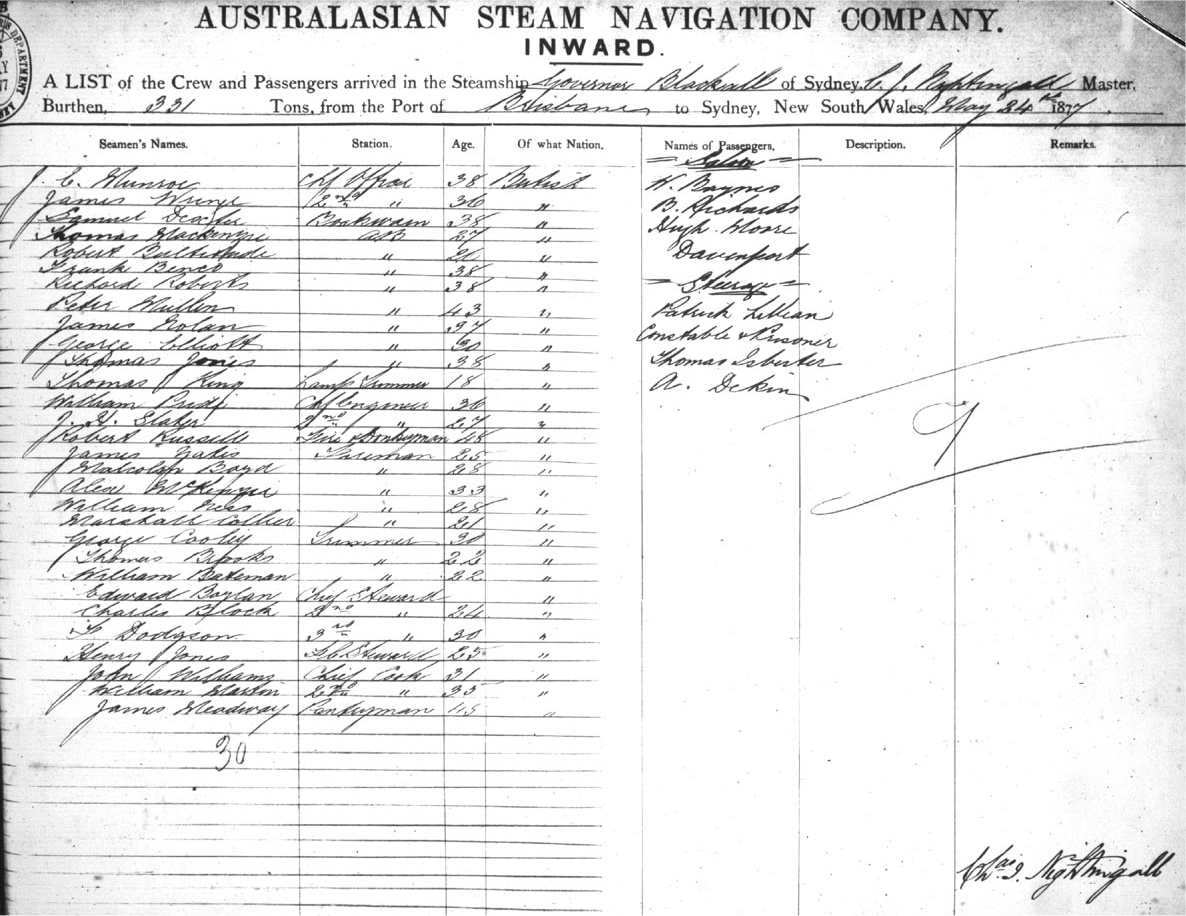 AUSTRALASIAN STEAM NAVIGATION COMPANY.
INWARD.
A LIST of the Crew and Passengers arrived in the Steamship Governor Blackall of Sydney, C. J. Nightingall Master,
Burthen, 331 Tons, from the Port of Brisbane to Sydney, New South Wales, May 24th 1877
Seamen's Names. Station. Age. Of what Nation. Names of Passengers, Description. Remarks.
Saloon
J. C. Munroe Chf Officer 38 British W. Baynes
James 2nd " 36 " B. Richards
Samuel Dexter Boatswain 38 " Hugh Moore
Thomas Mackenzie AB 27 "
Robert " " Davenport
Frank " 38 "
Richard Roberts " 38 " Steerage
Peter Mullen " 43 " Patrick
James Nolan " 37 " Constable & Prisoner
George Elliott " 30 " Thomas Isbister
Thomas Jones " 38 "
Thomas King Lamp Trimmer 18 " A. Dekin
William Chf Engineer 36 "
J. H. Slater 2nd " 27 "
Robert Russell Donkeyman 48 "
James Yates Fireman 25 "
Malcolm Boyd " 28 "
Alex McKenzie " 33 "
William " 28 "
Marshall Collier " 21 "
George Cooley Trimmer 30 "
Thomas Brooks " 22 "
William Bateman " 22 "
Edward Boylan Chief Steward "
Charles Block 2nd " 24 "
F. Dodgson 3rd " 30 "
Henry Jones Steward 25 "
John Williams Chief Cook 31 "
William Martin 2nd " 35 "
James Meadway Pantryman "
30
Chas J. Nightingall